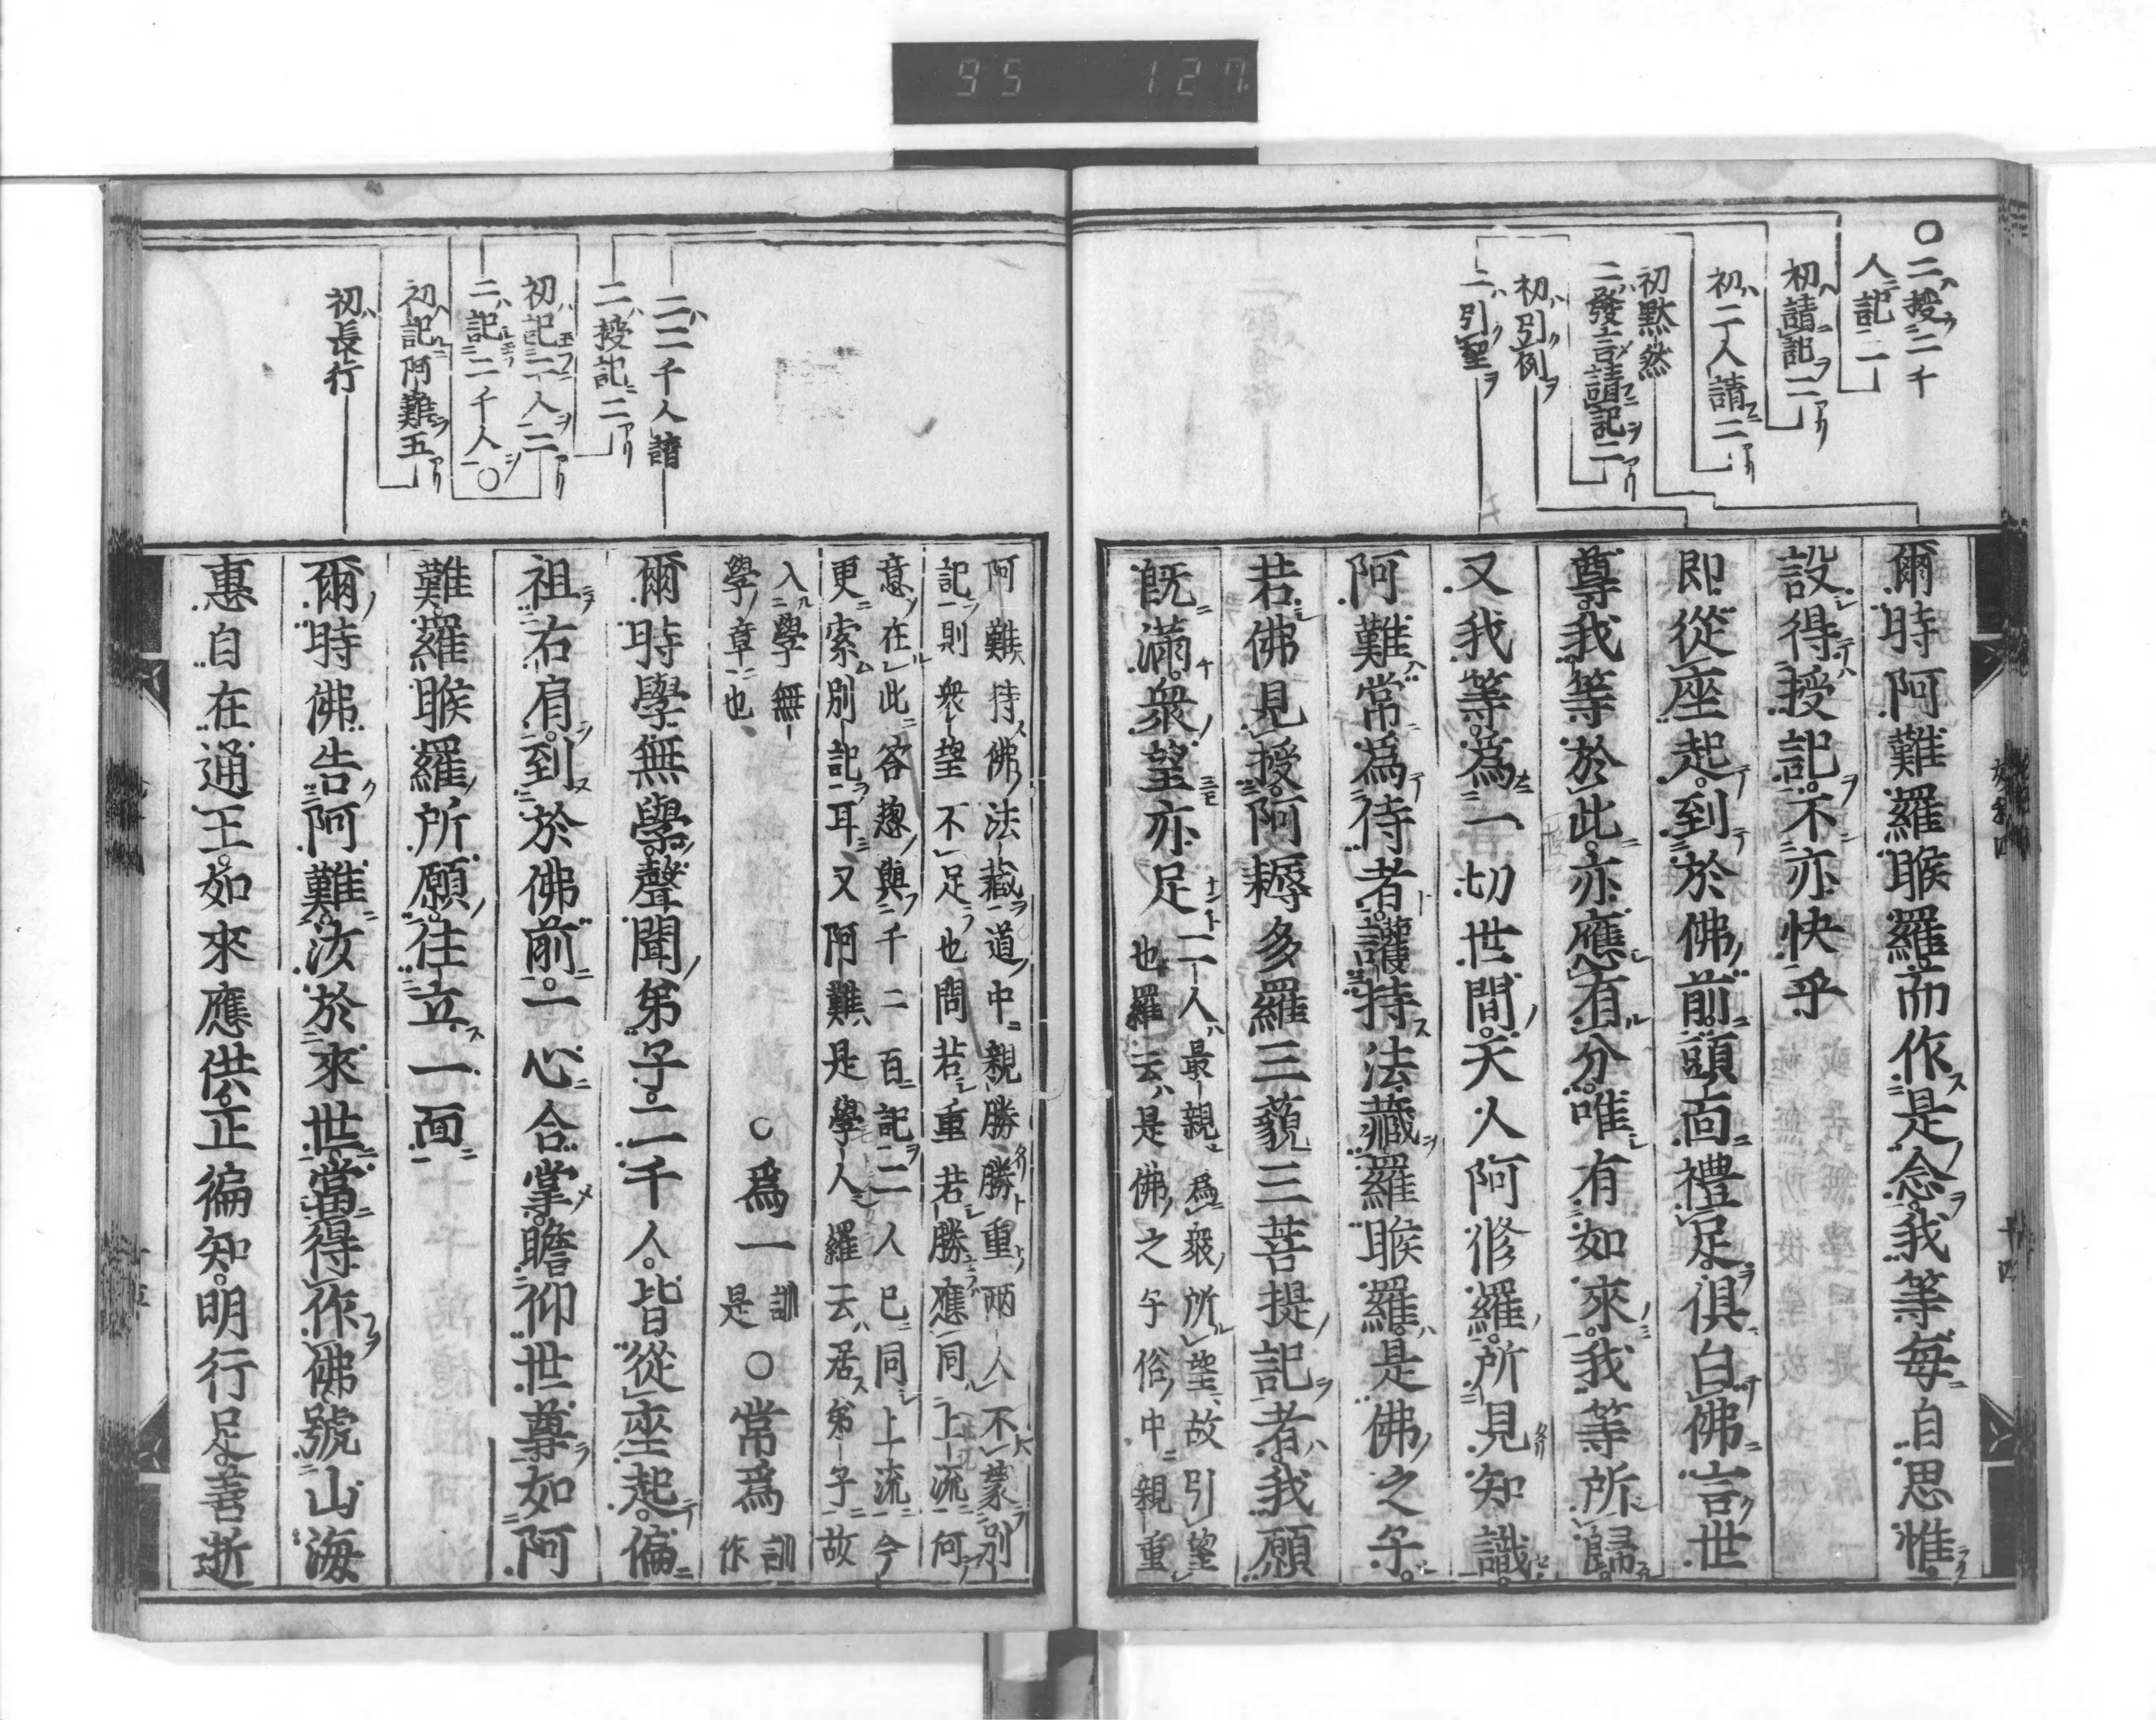 95 127
○二授二千
人記二
初請記二
初二人請二
初默然
二發言請記二
初引例
二引聖
爾時阿難羅睺羅而作是念我等每自思惟
設得授記不亦快乎
即從座起到於佛前頭面禮足俱白佛言世
尊我等於此亦應有分唯有如來我等所歸
又我等為一切世間天人阿修羅所見知識
阿難常為侍者護持法藏羅睺羅是佛之子
若佛見授阿耨多羅三藐三菩提記者我願
既滿衆望亦足
二人最親為衆所望故引望
也羅云是佛之子俗中親重
二二千人請
二授記二
初記二人二
二記二千人○
初記阿難五
初長行
阿難持佛法藏道中親勝勝重兩人不蒙別
記則衆望不足也問若重若勝應同上流何
意在此答趣與千二百記二人已同上流今
更索別記耳又阿難是學人羅云居弟子故
入學無
學章也
○為一訓是○常為訓作
爾時學無學聲聞弟子二千人皆從座起偏
袒右肩到於佛前一心合掌瞻仰世尊如阿
難羅睺羅所願住立一面
爾時佛告阿難汝於來世當得作佛號山海
惠自在通王如來應供正徧知明行足善逝